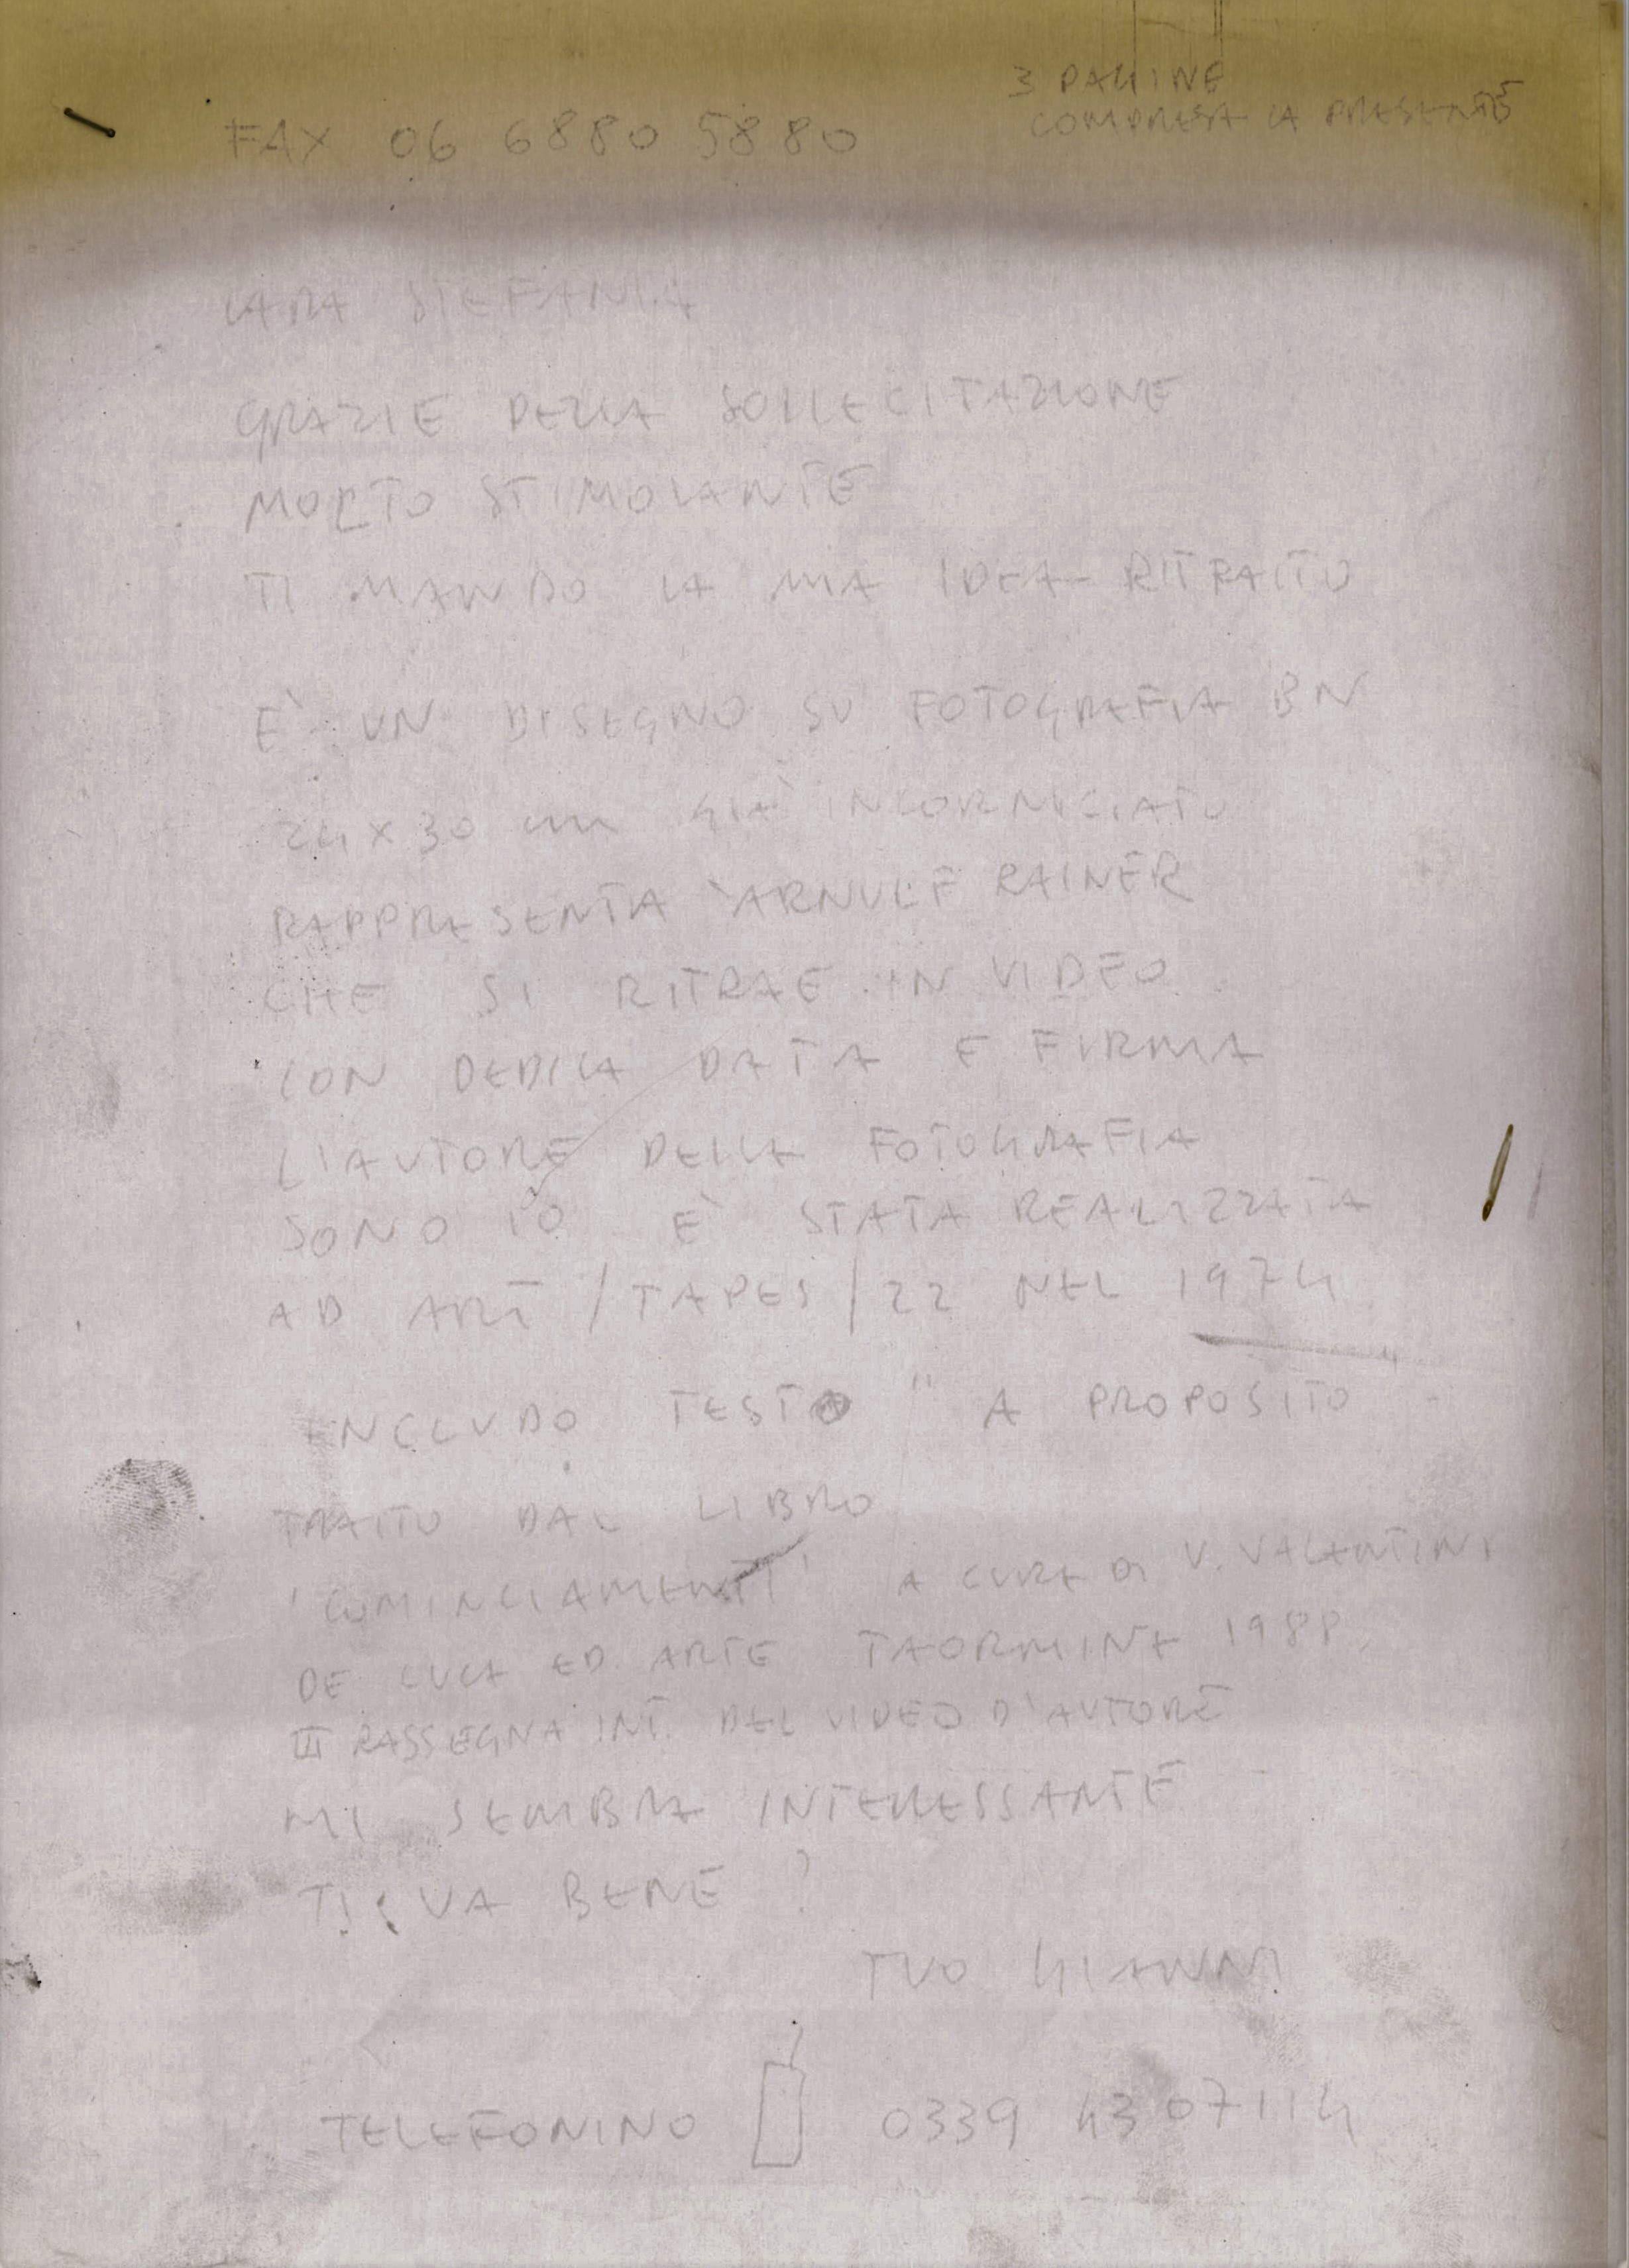 3 PAGINE
COMPRESA LA PRESENTE
FAX 06 6880 5880
CARA STEFANIA
GRAZIE DELLA SOLLECITAZIONE
MOLTO STIMOLANTE
TI MANDO LA MIA IDEA-RITRATTO
È UN DISEGNO SU FOTOGRAFIA BN
24 x 30 cm GIÀ INCORNICIATO
RAPPRESENTA ARNULF RAINER
CHE SI RITRAE IN VIDEO
CON DEDICA DATA E FIRMA
L'AUTORE DELLA FOTOGRAFIA
SONO IO È STATA REALIZZATA
AD ART / TAPES / 22 NEL 1974
INCLUDO TESTO "A PROPOSITO"
TRATTO DAL LIBRO
'COMINCIAMENTI' A CURA DI V. VALENTINI
DE LUCA ED. ARTE TAORMINA 1988
III RASSEGNA INT. DEL VIDEO D'AUTORE
MI SEMBRA INTERESSANTE
TI VA BENE ?
TUO GIANNI
TELEFONINO 0339 4307114